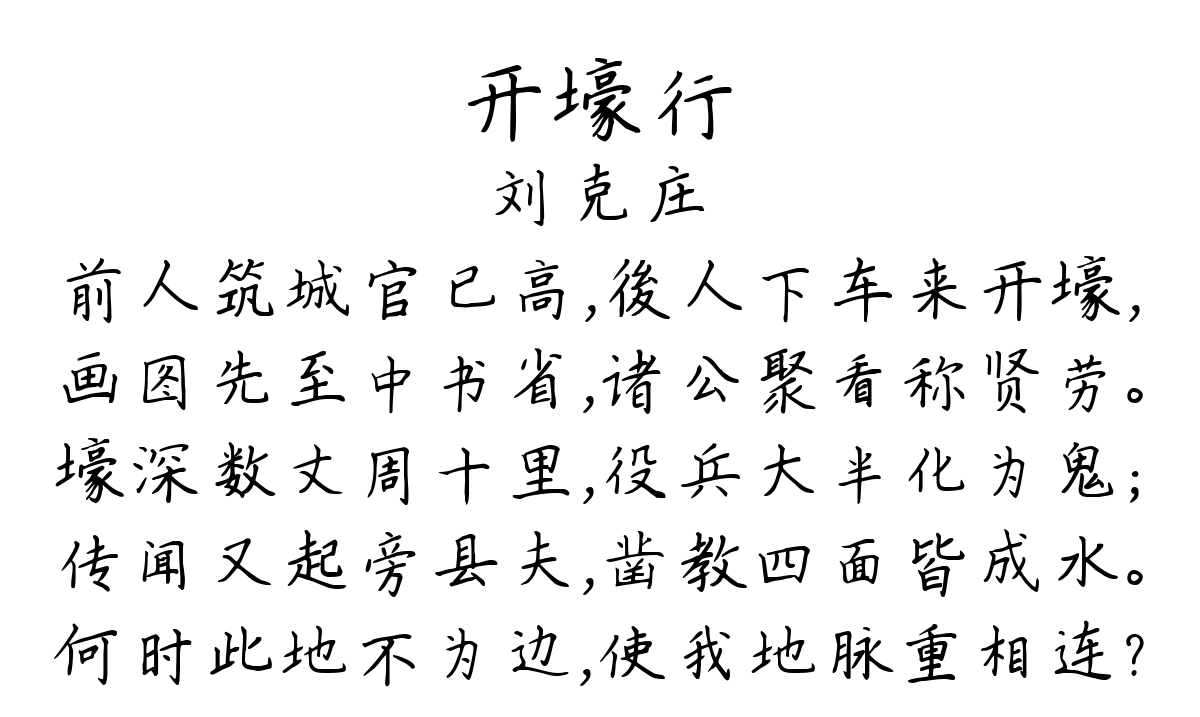 开壕行
刘克庄
前人筑城官已高,後人下车来开壕,
画图先至中书省,诸公聚看称贤劳。
壕深数丈周十里,役兵大半化为鬼;
传闻又起旁县夫,凿教四面皆成水。
何时此地不为边,使我地脉重相连?